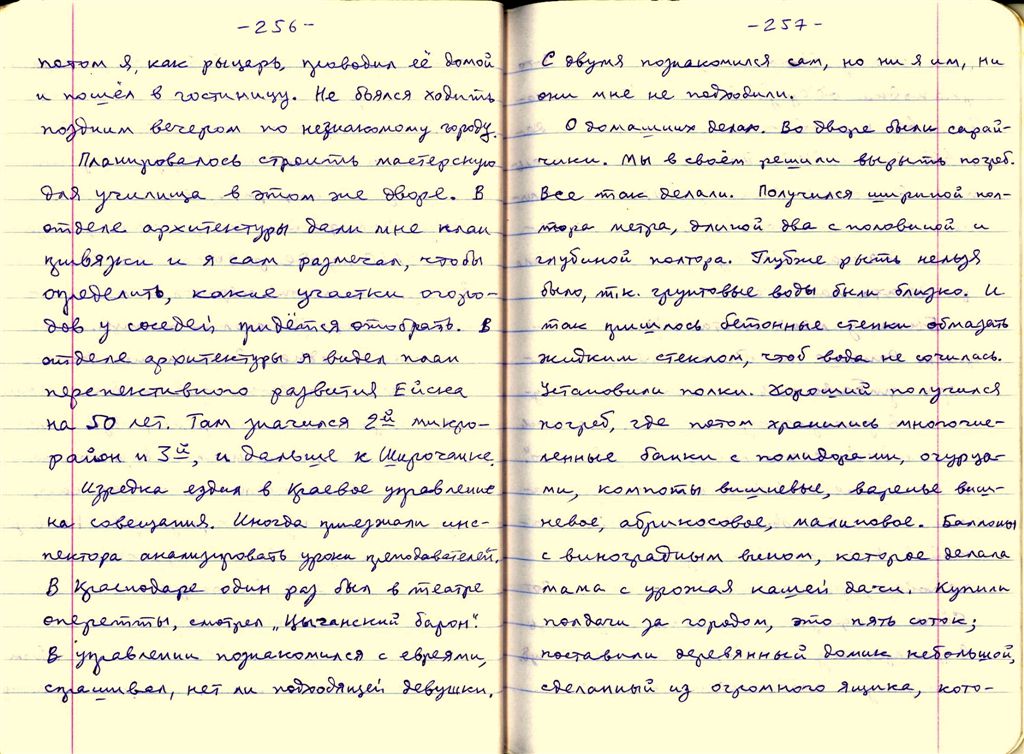 -256-
потом я, как рыцарь, проводил её домой
и пошёл в гостиницу. Не боялся ходить
поздним вечером по незнакомому городу.
Планировалось строить мастерскую
для училища в этом же дворе. В
отделе архитектуры дали мне план
привязки и я сам размечал, чтобы
определить, какие участки огоро-
дов у соседей придётся отобрать. В
отделе архитектуры я видел план
перспективного развития Ейска
на 50 лет. Там значился 2й микро-
район и 3й, и дальше к Широчанке.
Изредка ездил в Краевое управление
на совещания. Иногда приезжали инс-
пектора анализировать уроки преподавателей.
В Краснодаре один раз был в театре
оперетты, смотрел „Цыганский барон".
В управлении познакомился с евреями,
спрашивал, нет ли подходящей девушки.
-257-
С двумя познакомился сам, но ни я им, ни
они мне не подходили.
О домашних делах. Во дворе были сарай-
чики. Мы в своём решили вырыть погреб.
Все так делали. Получился шириной пол-
тора метра, длиной два с половиной и
глубиной полтора. Глубже рыть нельзя
было, т.к. грунтовые воды были близко. И
так пришлось бетонные стенки обмазать
жидким стеклом, чтоб вода не сочилась.
Установили полки. Хороший получился
погреб, где потом хранились многочис-
ленные банки с помидорами, огурца-
ми, компоты вишневые, варенье виш-
невое, абрикосовое, малиновое. Баллоны
с виноградным вином, которое делала
мама с урожая нашей дачи. Купили
полдачи за городом, это пять соток;
поставили деревянный домик небольшой,
сделанный из огромного ящика, кото-